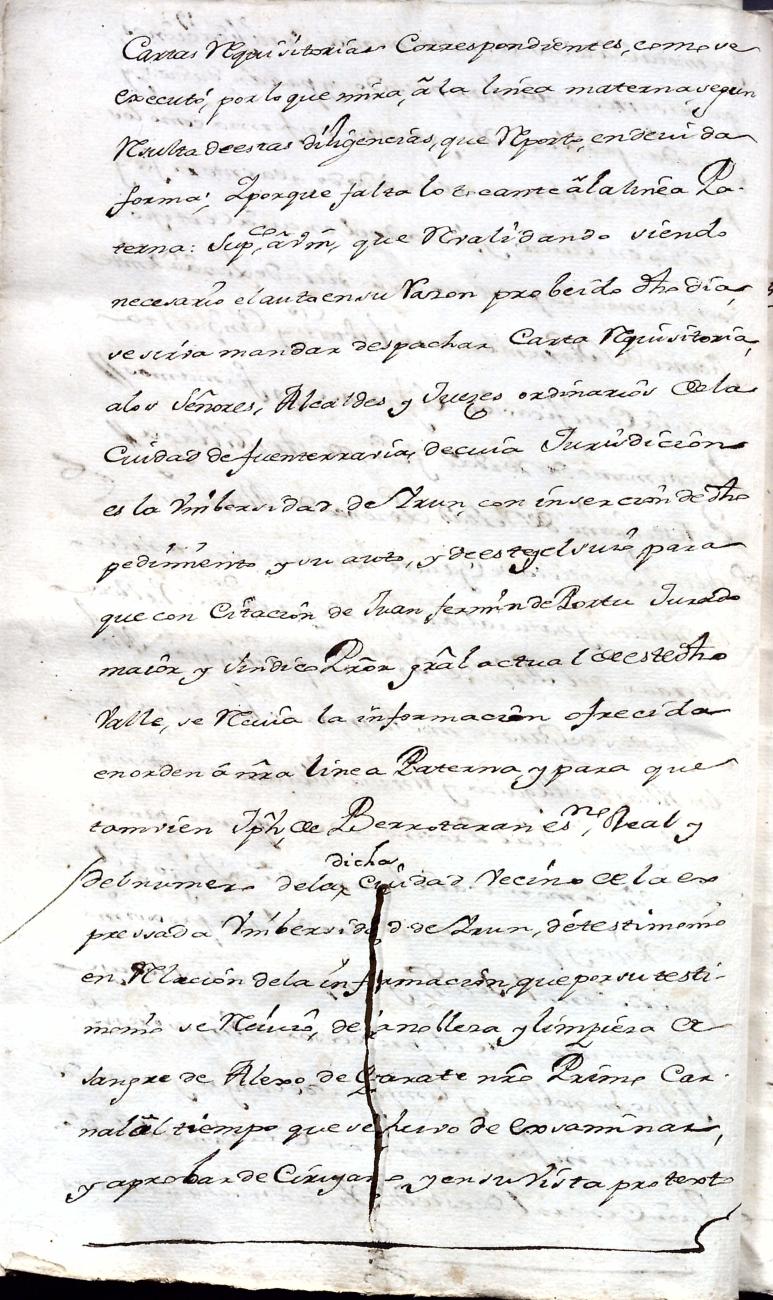 Cartas Rquisitorias Correspondientes, como se
executó, por lo que mira, â la linea materna, segun
Rsulta de estas diligencias, que Rporto, en devida
forma; Y porque falta lo tocante âla linea Pa-
terna: Supco, â Vm, que Rvalidando siendo
necesario el auto en su Rason probeido dho dia,
se sirva mandar despachar Carta Rquisitoria,
alos Señores, Alcaldes y Juezes ordinarios de la
Cuidad de fuenterravia, de cuia Jurisdicion
es la Vnibersidad de Yrun, con insercion de dho
pedimento y su auto, y de este y el suio para
que con Citacion de Juan fermin de Portu Jurado
maior y sindico Pror gral actual de este dho
Valle, se Rciva la informacion ofrecida
en orden á nra linea Paterna, y para que
tamvien Jph, de Berrotaran esno, Real y
del numero dela dicha Ciudad Vecino de la ex
pressada Vnibersidad de Yrun, dé testimonio
en Rlacion de la informacion, que por su testi-
monio se Rcivio, de la nobleza y limpieza de
sangre de Alexo, de Zarate nro Primo Car-
nal âl tiempo que se huvo de exsaminar,
y aprobar de Cirujano, y en su Vista protexto